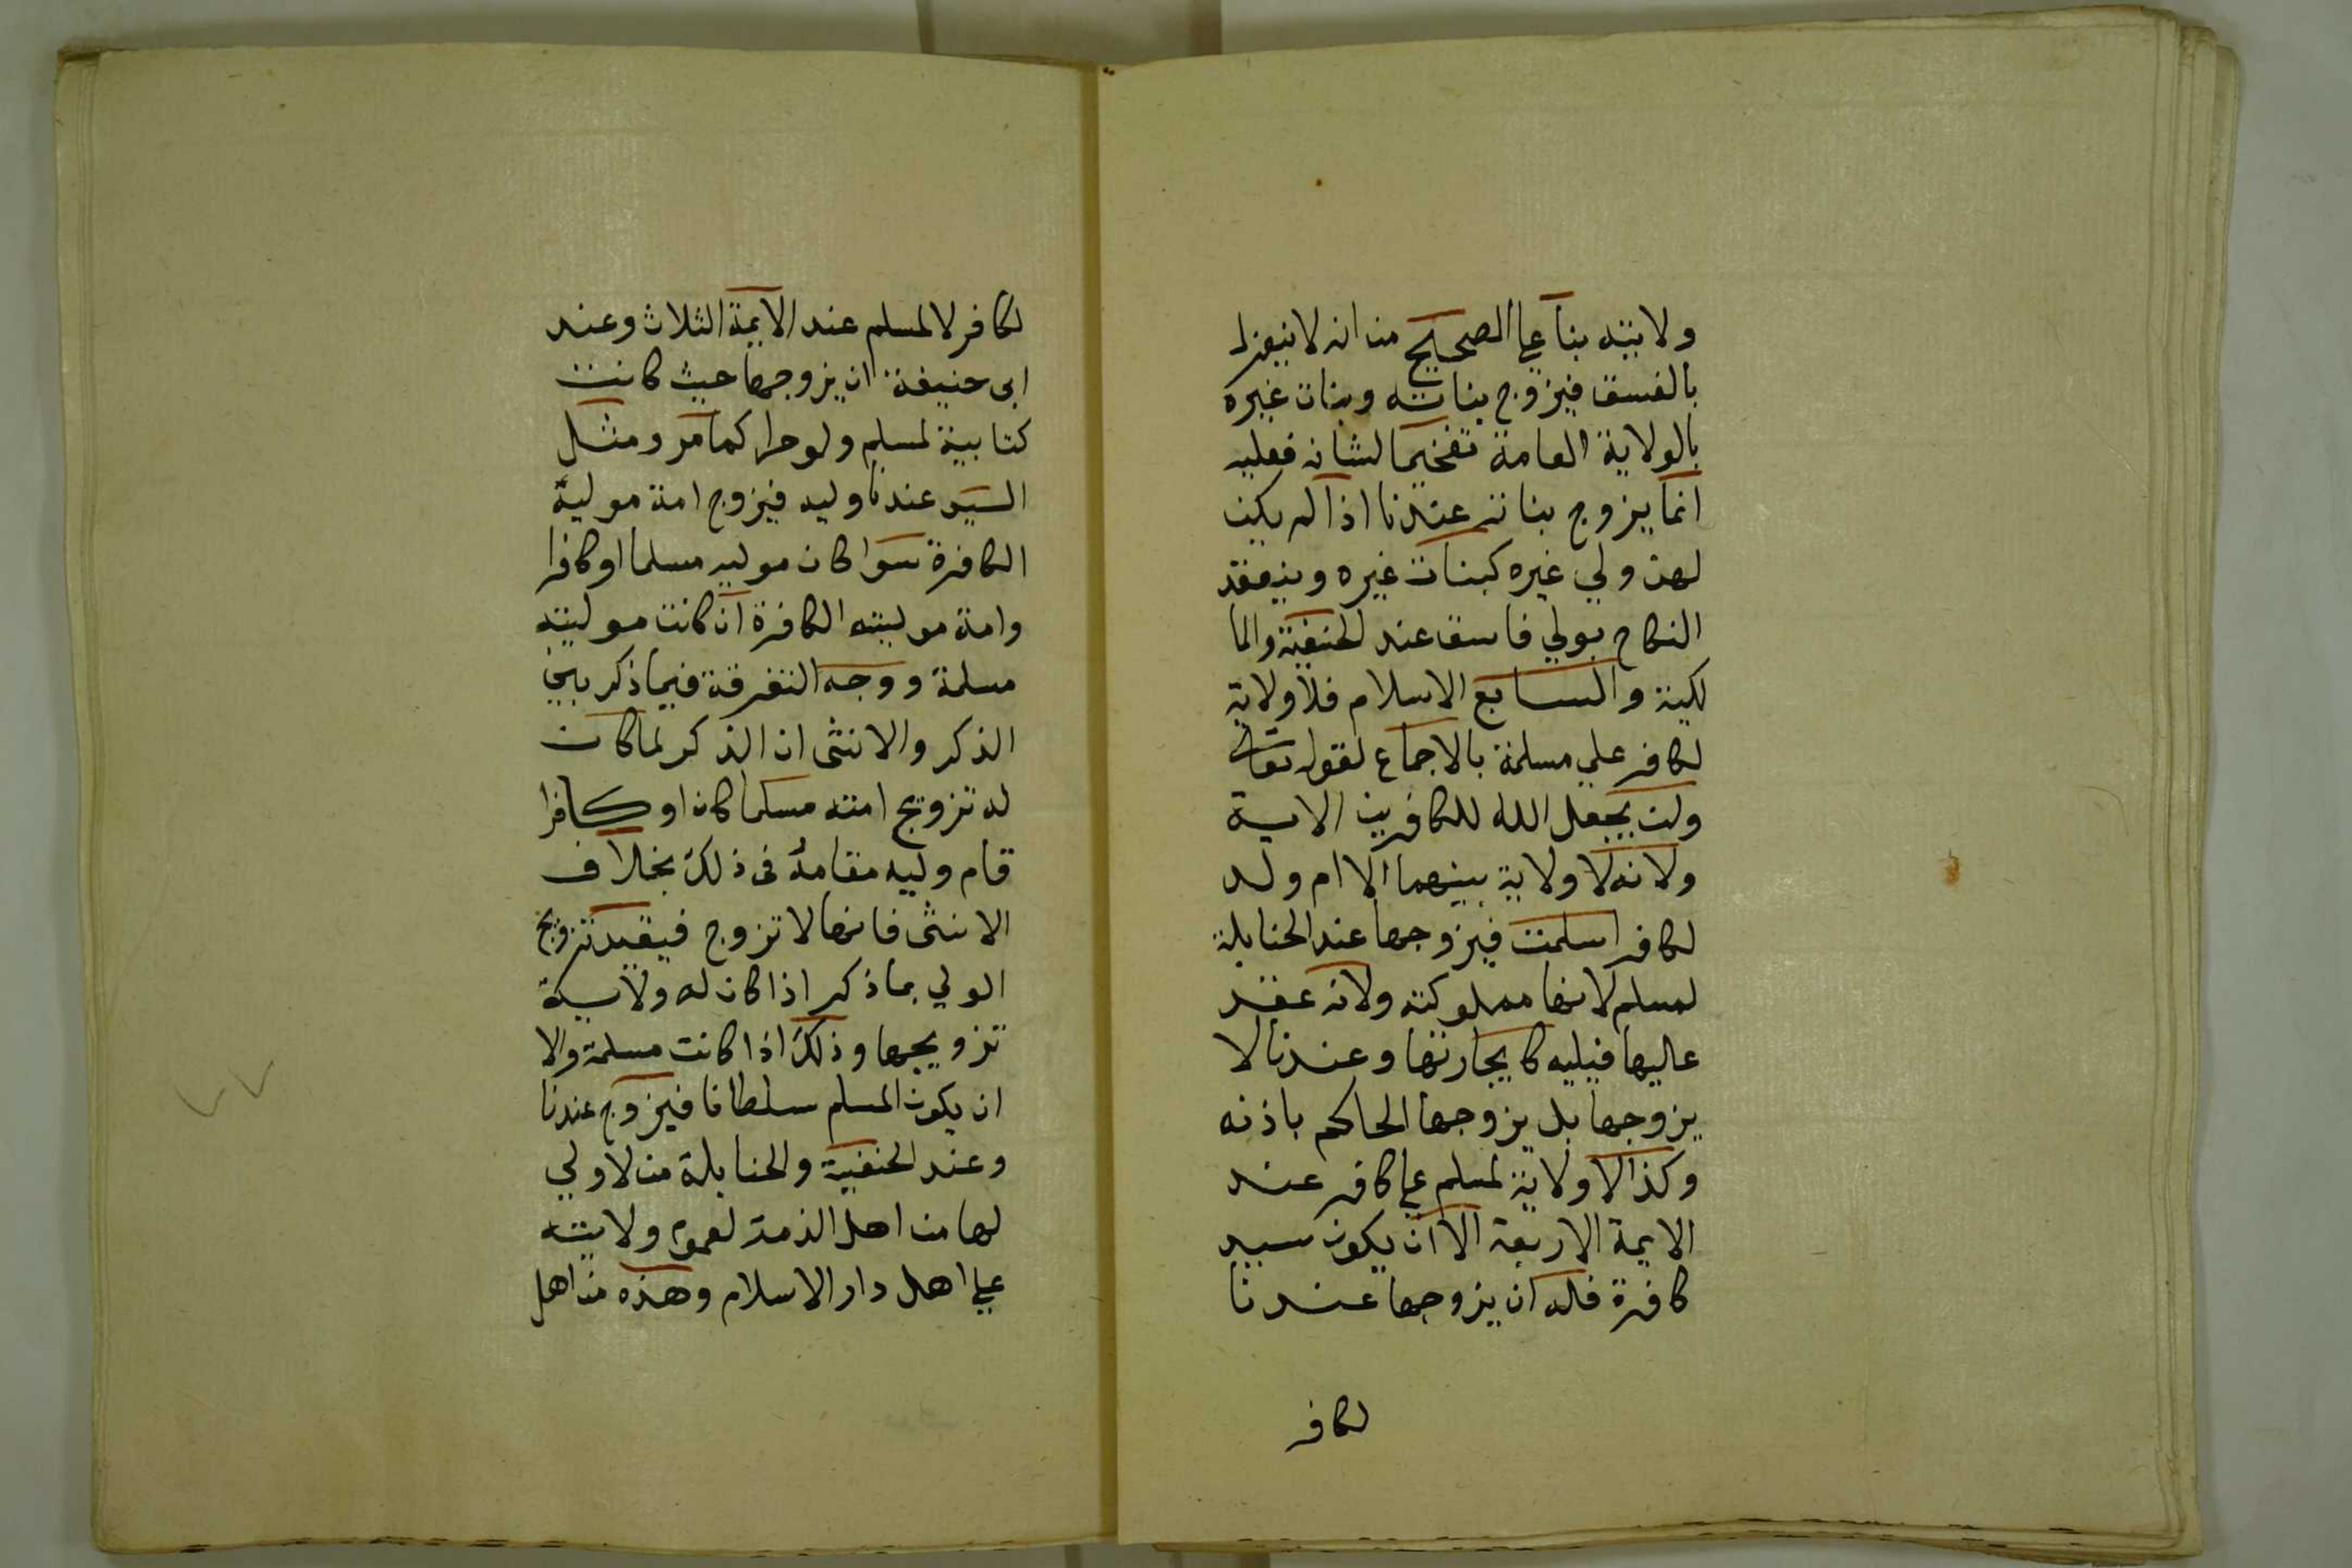 ولايته بنا على الصحيح من انه لا ينعزل
بالفسق فيزوج بناته وبنات غيره
بالولاية العامة تفخيما لشانه فعليه
انما يزوج بناته عندنا اذا لم يكن
لهن ولي غيره كبنات غيره وينعقد
النكاح بولي فاسق عند الحنفية والما
لكية والسابع الاسلام فلا ولاية
لكافر علي مسلمة بالاجماع لقوله تعالى
ولن يجعل الله للكافرين الاية
ولانه لا ولاية بينهما الا ام ولد
لكافر اسلمت فيزوجها عند الحنابلة
لمسلم لانها مملوكته ولانه عقد
عاليها فيليه كايجارتها وعندنا لا
يزوجها بل يزوجها الحاكم باذنه
وكذا لا ولاية لمسلم على كافر عند
الايمة الاربعة الا ان يكون سيد
كافرة فله ان يزوجها عندنا
لكافر
لكافر لا لمسلم عند الايمة الثلاث وعند
ابى حنيفة ان يزوجها حيث كانت
كتابية لمسلم ولو حرا كما مر ومثل
السيد عندنا وليه فيزوج امة موليه
الكافرة سوا كان موليه مسلما او كافرا
وامة موليته الكافرة ان كانت موليته
مسلمة ووجه التفرقة فيما ذكر بين
الذكر والانثى ان الذكر لما كان
له تزويج امته مسلما كان او كافرا
قام وليه مقامه فى ذلك بخلاف
الانثى فانها لا تزوج فيقيد تزويج
الولي بما ذكر اذا كان له ولاية
تزويجها وذلك اذا كانت مسلمة والا
ان يكون المسلم سلطانا فيزوج عندنا
وعند الحنفية والحنابلة من لا ولي
لها من اهل الذمة لعموم ولايته
على اهل دار الاسلام وهذه من اهل